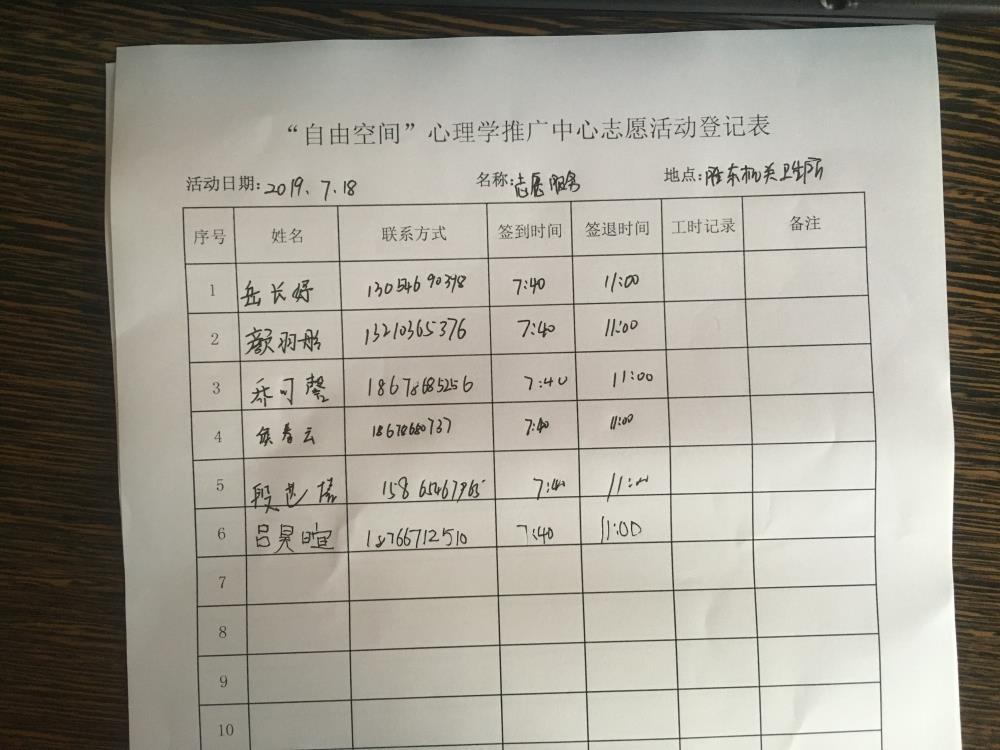 “自由空间”心理学推广中心志愿活动登记表
活动日期:2019.7.18 名称:志愿服务 地点:胜东机关卫生所
序号 姓名 联系方式 签到时间 签退时间 工时记录 备注
1 岳长好 13054690398 7:40 11:00
2 颜羽彤 13210365376 7:40 11:00
3 乔可馨 18678685256 7:40 11:00
4 侯春云 18678680737 7:40 11:00
5 段 15865467965 7:40 11:00
6 吕昊暄 18766712510 7:40 11:00
7
8
9
10